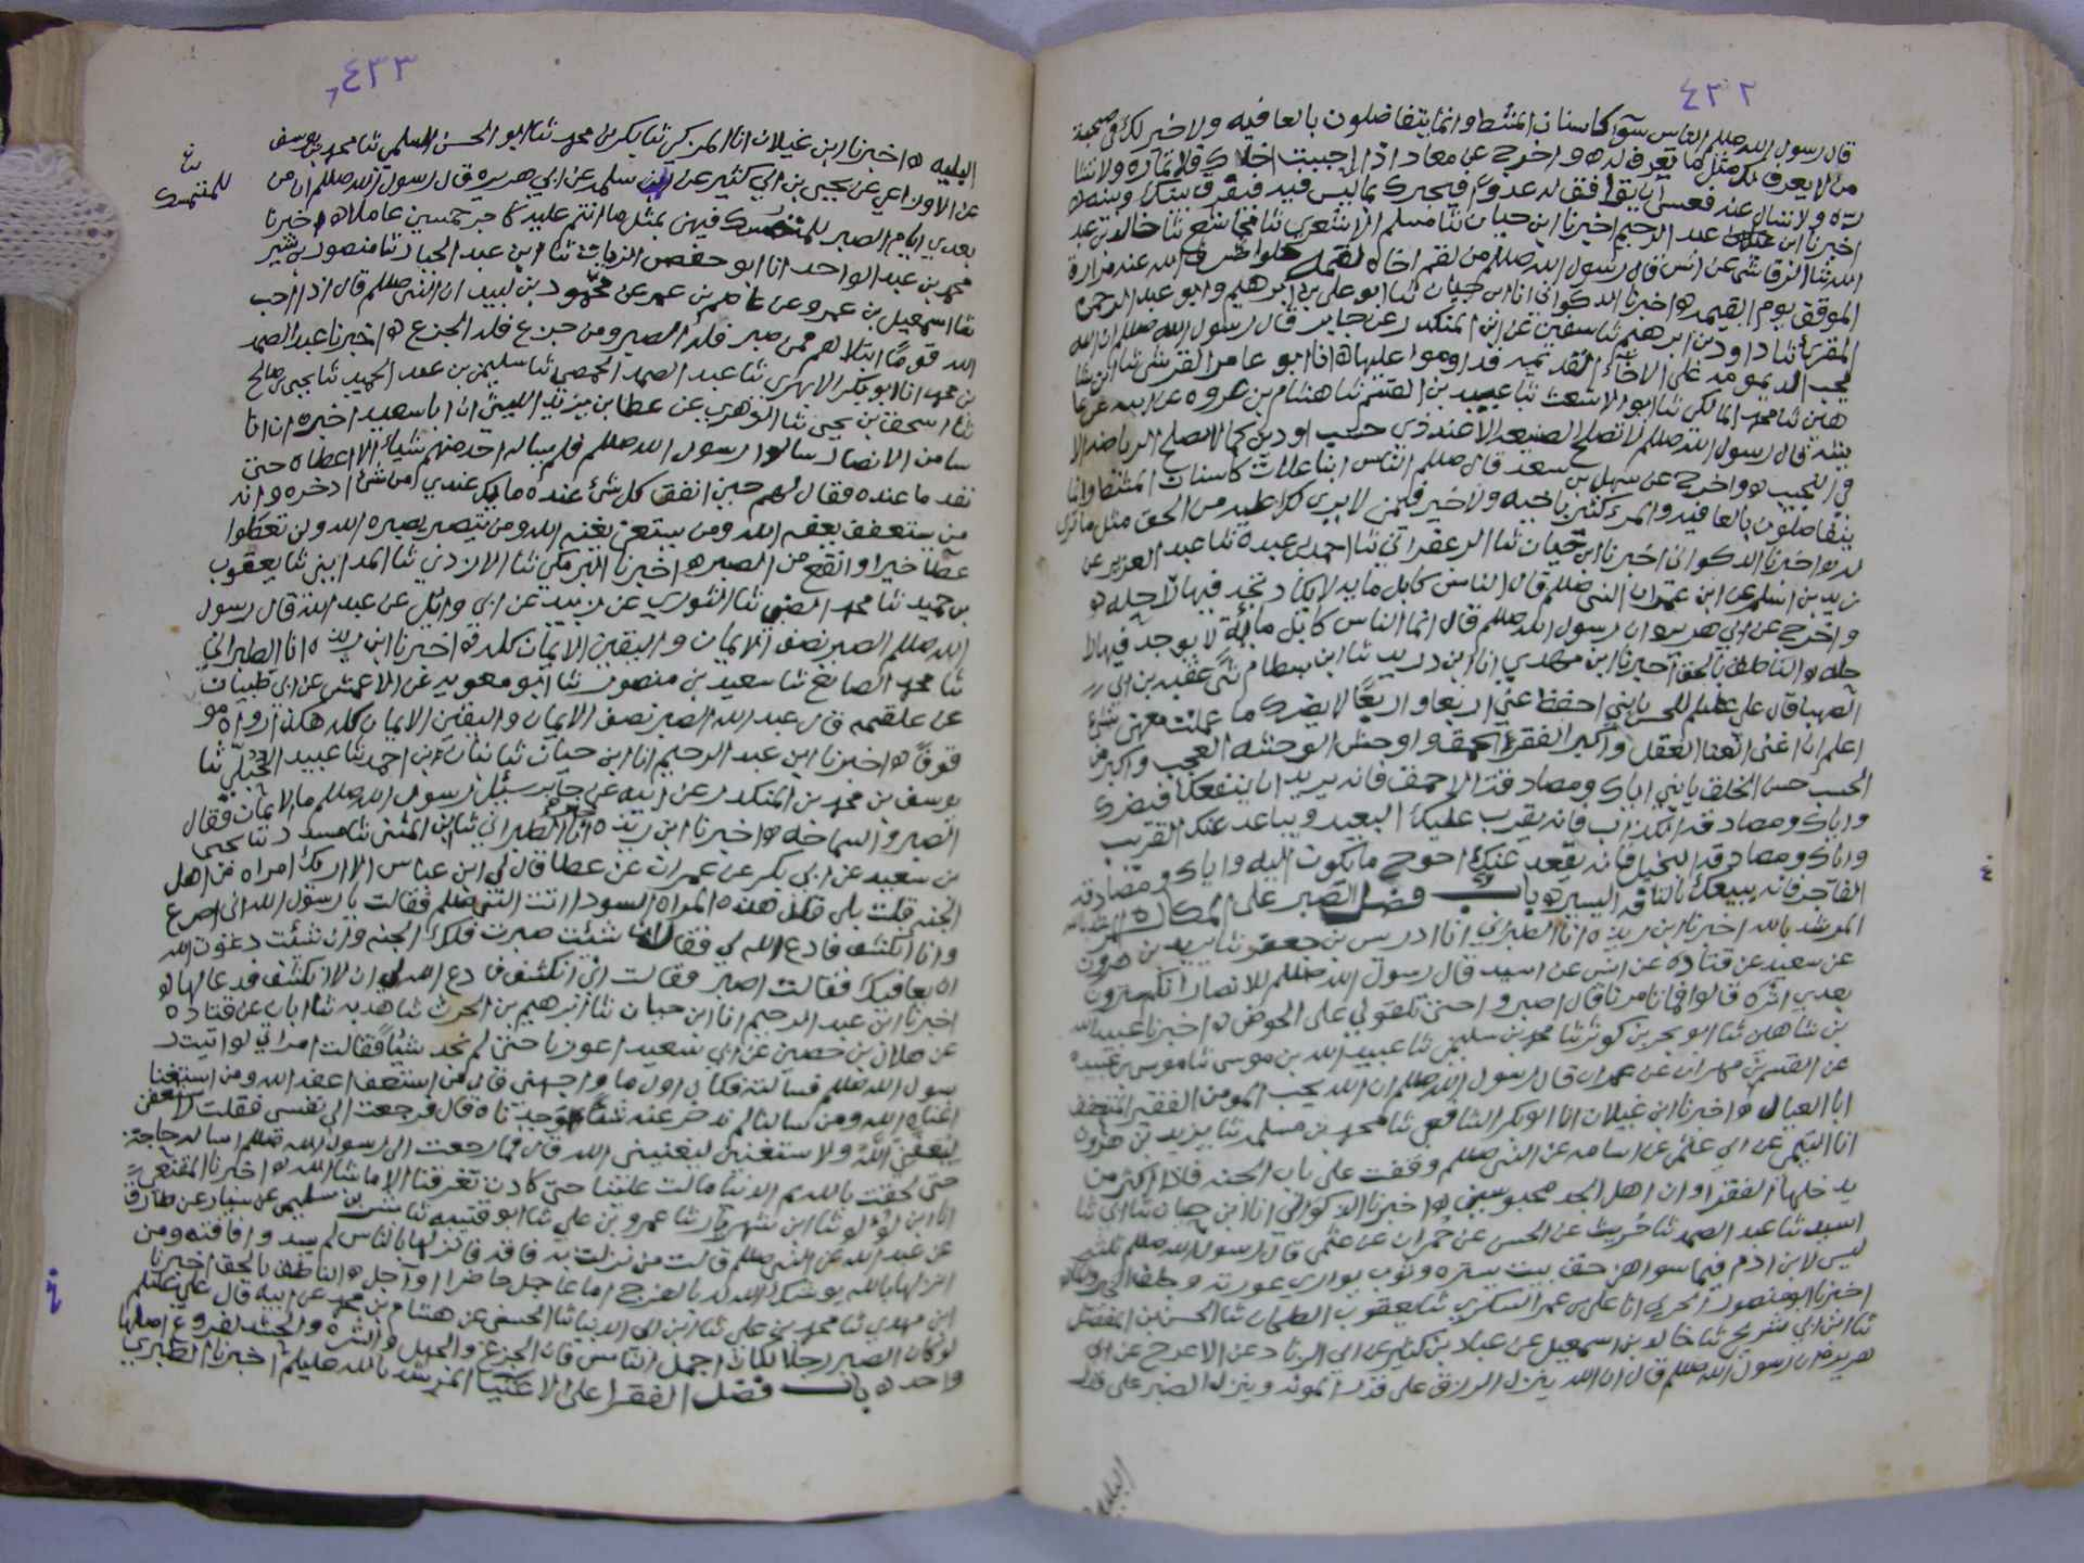 ٤٣٢
قال رسول الله صللم الناس سوآ كاسنان المشط وانما يتفاضلون بالعافيه ولا خير لك في صحبة
من لا يعرف لك مثل ما تعرف له ه واخرج عن معاد اذا احببت اخلاك فلا تماره ولا تشا
ره ولا تسال عنه فعسى ان توافق له عدوا فيخبرك بما ليس فيه فيفرق بينك وبينه ه
اخبرنا ابن عبد الرحيم اخبرنا ابن حيان ثنا مسلم الاشعري ثنا مجاشع ثنا خالد بن عبد
الله ثنا الرقاشى عن انس قال رسول الله صللم من لقم اخاه لقمة حلوا صرف الله عنه مرارة
الموقف يوم القيمه ه اخبرنا الذكواني انا ابن حيان ثنا ابو علي بن ابرهيم وابو عبد الرحمن
المقري ثنا داود بن ابرهيم ثنا سفين عن ابن المنكدر عن جابر قال رسول الله صللم ان الله
يحب الديمومه على الاخآء القديمه فداوموا عليها ه انا ابو عامر القرشى ثنا ابن شا
هين ثنا محمد المالكي ثنا ابو الاشعث ثنا عبيد بن القسم ثنا هشام بن عروه عن ابيه عن عا
يشه قال رسول الله صللم لا تصلح الصنيعه الا عند ذي حسب او دين كما لا تصلح الرياضه الا
في النجيب ه واخرج عن سهل بن سعد قال صللم الناس كاسنان المشط وانما
يتفاضلون بالعافيه والمرء كثير باخيه ولا خير فيمن لا يرى لك عليه من الحق مثل ما ترى
له ه اخبرنا الذكواني اخبرنا ابن حيان ثنا الزعفراني ثنا احمد بن عبدة ثنا عبد العزيز عن
زيد بن اسلم عن ابن عمر ان النبى صللم قال الناس كابل مايه لا يكاد تجد فيها راحله ه
واخرج عن ابي هريره ان رسول الله صللم قال انما الناس كابل مائة لا يوجد فيها را
حله ه الناطق بالحق اخبرنا ابن مهدي انا ابن دريد ثنا ابن بسطام ثنى عقبه بن ابي
الصهبا قال علي عللم للحسن يا بني احفظ عني اربعا واربعًا لا يضرك ما عملت معهن شئ
اعلم ان اغنى الغنا العقل واكبر الفقر الحمق واوحش الوحشه العجب واكرم
الحسب حسن الخلق يا بني اياك ومصادقة الاحمق فانه يريد ان ينفعك فيضرك
واياك ومصادقة الكذاب فانه يقرب عليك البعيد ويباعد عنك القريب
واياك ومصادقة البخيل فانه يقعد عنك احوج ما تكون اليه واياك ومصادقة
الفاجر فانه يبيعك بالتافه اليسير ه باب فضل الصبر على المكاره
المرشد بالله اخبرنا ابن ريذه انا الطبراني انا ادريس بن جعفر ثنا يزيد بن هرون
عن سعيد عن قتاده عن انس عن اسيد قال رسول الله صللم للانصار انكم سترون
بعدي اثره قالوا فما تامرنا قال اصبروا حتى تلقوني على الحوض ه اخبرنا عبيد الله
بن شاهين ثنا ابو بحر بن كوثر ثنا محمد بن سليمن ثنا عبيد الله بن موسى ثنا موسى بن عبيده
عن القسم بن مهران عن عمران قال رسول الله صللم ان الله يحب المومن الفقير المتعفف
ابا العيال ه اخبرنا ابن غيلان انا ابو بكر الشافعي ثنا محمد بن مسلمه ثنا يزيد بن هرون
انا التيمي عن ابي عثمن عن اسامه عن النبى صللم وقفت على باب الجنه فاذا اكثر من
يدخلها الفقرا وان اهل الجد محبوسين ه اخبرنا الذكواني انا ابن حيان ثنا ابي ثنا
اسيد ثنا عبد الصمد ثنا حريث عن الحسن عن حمران عن عثمن قال رسول الله صللم
ليس لابن ادم فيما سوا هن حق بيت يستره وثوب يواري عورته وجلف الخبز والماء
اخبرنا ابو منصور انا علي بن عمر السكري ثنا يعقوب ثنا الحسن بن المفضل
ثنا ابن ابي شريح ثنا خالد بن اسمعيل عن عباد بن كثير عن ابي الزناد عن الاعرج عن ابي
هريره ان رسول الله صللم قال ان الله ينزل الرزق على قدر المونه وينزل الصبر على قدر
البليه
٤٣٣
البليه ه اخبرنا ابن غيلان انا المزكي ثنا بكر بن محمد ثنا ابو الحسن السلمي ثنا محمد بن يوسف
عن الاوزاعي عن يحيى بن ابي كثير عن ابي سلمه عن ابي هريره قال رسول الله صللم ان من
بعدي ايام الصبر للمتمسك فيهن بمثل ما انتم عليه كاجر خمسين عاملا ه اخبرنا
للمتمسك
محمد بن عبد الواحد انا ابو حفص الزيات ثنا ابن عبد الجبار ثنا منصور بن بشير
ثنا اسمعيل بن عمرو عن عاصم بن عمر عن محمود بن لبيد ان النبى صللم قال اذا احب
الله قومًا ابتلاهم فمن صبر فله الصبر ومن جزع فله الجزع ه اخبرنا عبد الصمد
بن محمد انا ابو بكر الابهري ثنا عبد الصمد الحمصي ثنا سليمن بن عبد الحميد ثنا يحيى بن صالح
ثنا اسحق بن يحيى ثنا الزهري عن عطا بن يزيد الليثي ان ابا سعيد اخبره ان انا
سا من الانصار سالوا رسول الله صللم فلم يساله احد منهم شياء الا اعطاه حتى
نفد ما عنده فقال لهم حين انفق كل شئ عنده ما يك عندي من شئ ادخره وانه
من يستعفف يعفه الله ومن يستغن يغنه الله ومن يتصبر يصبره الله ولن تعطوا
عطآ خيرا واوسع من الصبر ه اخبرنا البرمكي ثنا الازدي ثنا المدايني ثنا يعقوب
بن حميد ثنا محمد ثنا الثوري عن زبيد عن ابي وائل عن عبد الله قال رسول
الله صللم الصبر نصف الايمان واليقين الايمان كله ه اخبرنا ابن ريذه انا الطبراني
ثنا محمد الصايغ ثنا سعيد بن منصور ثنا ابو معويه عن الاعمش عن ابي ظبيان
عن علقمه قال عبد الله الصبر نصف الايمان واليقين الايمان كله هكذا رواه مو
قوفًا ه اخبرنا ابن عبد الرحيم انا ابن حيان ثنا بنان بن احمد ثنا عبيد الجبلّي ثنا
يوسف بن محمد بن المنكدر عن ابيه عن جابر سئل رسول الله صللم ما الايمان فقال
الصبر والسماحه ه اخبرنا ابن ريذه انا الطبراني ثنا ابن المثنى ثنا مسدد ثنا يحيى
بن سعيد عن ابي بكر عن عمران عن عطا قال لي ابن عباس الا اريك امراه من اهل
الجنه قلت بلى قال هذه المراه السودا اتت النبى صللم فقالت يا رسول الله اني اصرع
وانا انكشف فادع الله لي فقال ان شئت صبرت فلك الجنه وان شئت دعوت الله
ان يعافيك فقالت اصبر وقالت اني انكشف فادع الله لي ان لا انكشف فدعا لها ه
اخبرنا ابن عبد الرحيم انا ابن حيان ثنا ابرهيم بن الحرث ثنا هدبه ثنا ابان عن قتاده
عن هلال بن حصين عن ابي سعيد اعوزنا حتى لم نجد شيئًا فقالت امراتي لو اتيت ر
سول الله صللم فسالته فكان اول ما واجهني قال من استعف اعفه الله ومن استغنا
اغناه الله ومن سالنا لم ندخر عنه شئًا وجدناه قال فرجعت الى نفسى فقلت لاستعفن
ليعفني الله ولا ستغنين ليغنيني الله قال فما رجعت الى رسول الله صللم اساله حاجة
حتى لحقت بالله ثم الدنيا مالت علينا حتى كادت تغرقنا الا ما شا الله ه اخبرنا المقنعي
انا ابن لؤلو ثنا ابن شهريار ثنا عمرو بن علي ثنا ابو قتيبه ثنا بشر بن سليمن عن سيار عن طارق
عن عبد الله عن النبى صللم قال من نزلت به فاقه فانزلها بالناس لم يسد وا فاقته ومن
انزلها بالله يوشك الله له بالفرج اما عاجل حاضرا او آجل ه الناطق بالحق اخبرنا
ابن مهدي ثنا محمد بن علي ثنا ابن ابي الدنيا ثنا الحسين عن هشام بن محمد عن ابيه قال علي عللم
لو كان الصبر رجلا لكان اجمل الناس فان الجزع والجهل والشره والحسد لفروع اصلها
واحد ه باب فضل الفقرا على الاغنيآ المرشد بالله عليلم اخبرنا الطبري